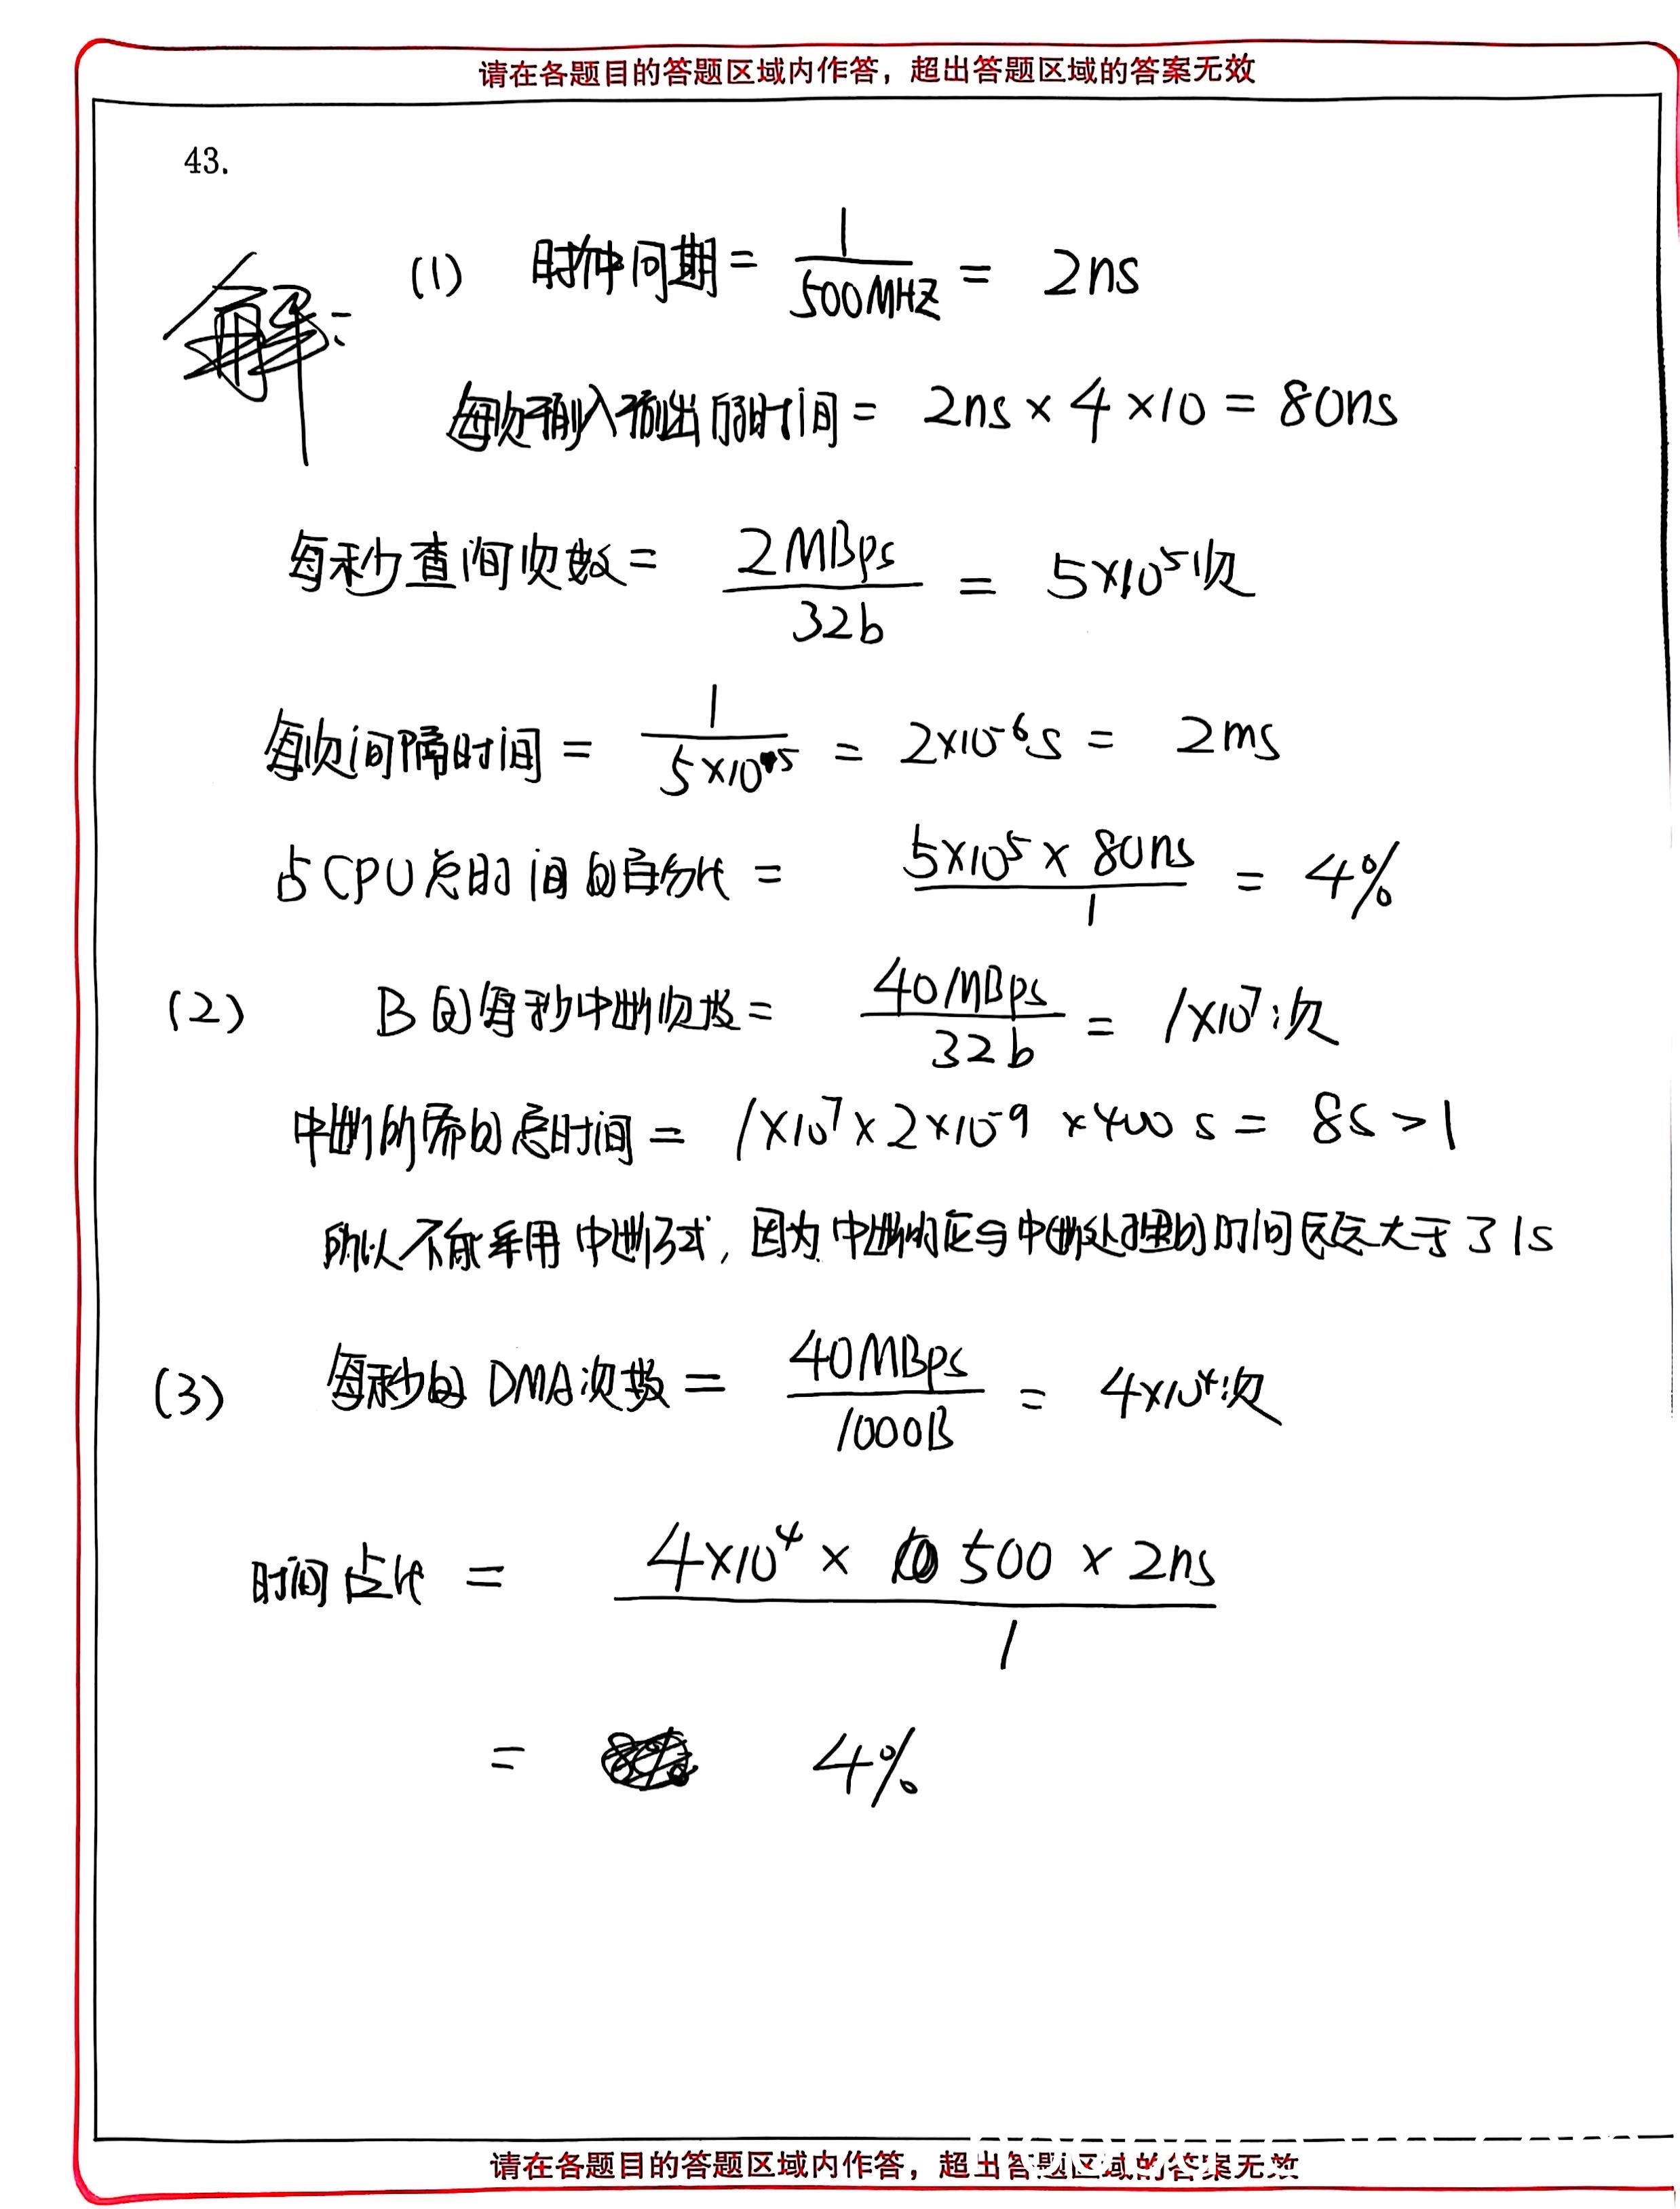 请在各题目的答题区域内作答，超出答题区域的答案无效
43.
解：
(1) 时钟周期 = 1/500MHz = 2ns
每次输入输出的时间 = 2ns × 4 × 10 = 80ns
每秒查询次数 = 2MBps/32b = 5×10⁵次
每次间隔时间 = 1/5×10⁵ = 2×10⁻⁶s = 2ms
占CPU总时间的百分比 = 5×10⁵ × 80ns/1 = 4%
(2) B的每秒中断次数 = 40MBps/32b = 1×10⁷次
中断所需的总时间 = 1×10⁷×2×10⁻⁹×400 s = 8s > 1
所以不能采用中断方式, 因为中断响应与中断处理的时间远远大于了1s
(3) 每秒的DMA次数 = 40MBps/1000B = 4×10⁴次
时间占比 = 4×10⁴ × 500 × 2ns/1
= 4%
请在各题目的答题区域内作答，超出答题区域的答案无效